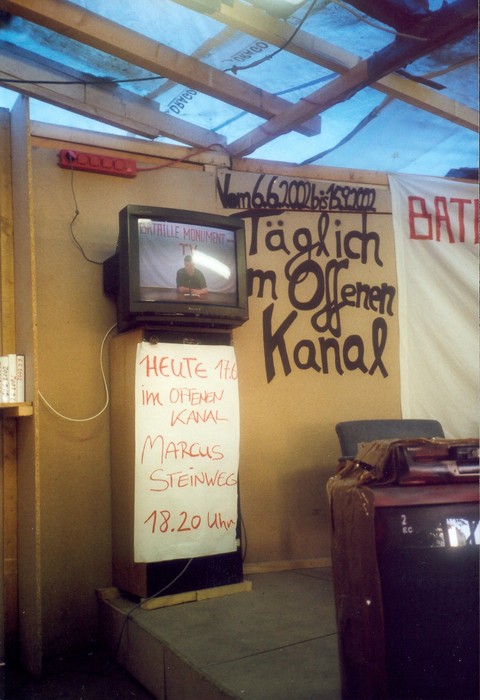 Vom 6.6.2002 bis 15.9.2002
Täglich
im Offenen
Kanal
BATA
BATAILLE MONUMENT —
TV
HEUTE 17.6
im OFFENEN
KANAL
MARCUS
STEINWEG
18.20 Uhr
2
EC